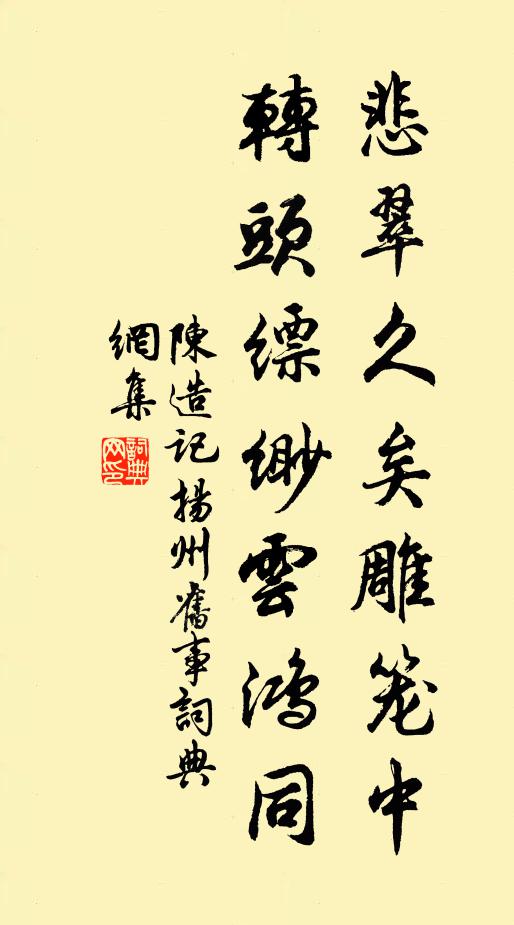 悲翠久矣雕笼中
轉頭縹緲雲鴻同
陳造记揚州舊事詞典
網集
詞典网印